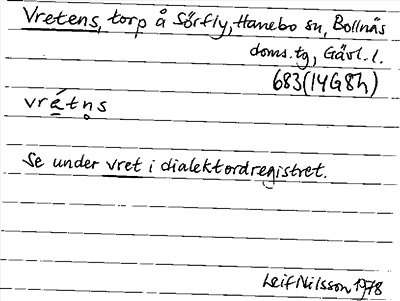 Vretens, torp å Sörfly, Hanebo sn, Bollnäs
doms.tg, Gävl.l.
683(14G8h)
vrá̲tn̥s
Se under vret i dialektordregistret.
Leif Nilsson 1978